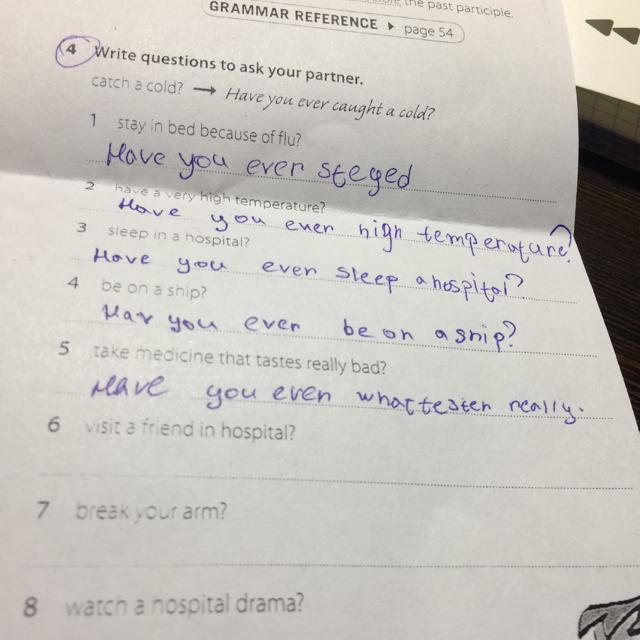 the past participle.
GRAMMAR REFERENCE ▶ page 54
4 Write questions to ask your partner.
catch a cold? → Have you ever caught a cold?
1 stay in bed because of flu?
Have you ever steyed
2 have a very high temperature?
Have you ever high temperature?
3 sleep in a hospital?
Have you ever sleep a hospital?
4 be on a ship?
Hav you ever be on a ship?
5 take medicine that tastes really bad?
Have you ever really.
6 visit a friend in hospital?
7 break your arm?
8 watch a hospital drama?